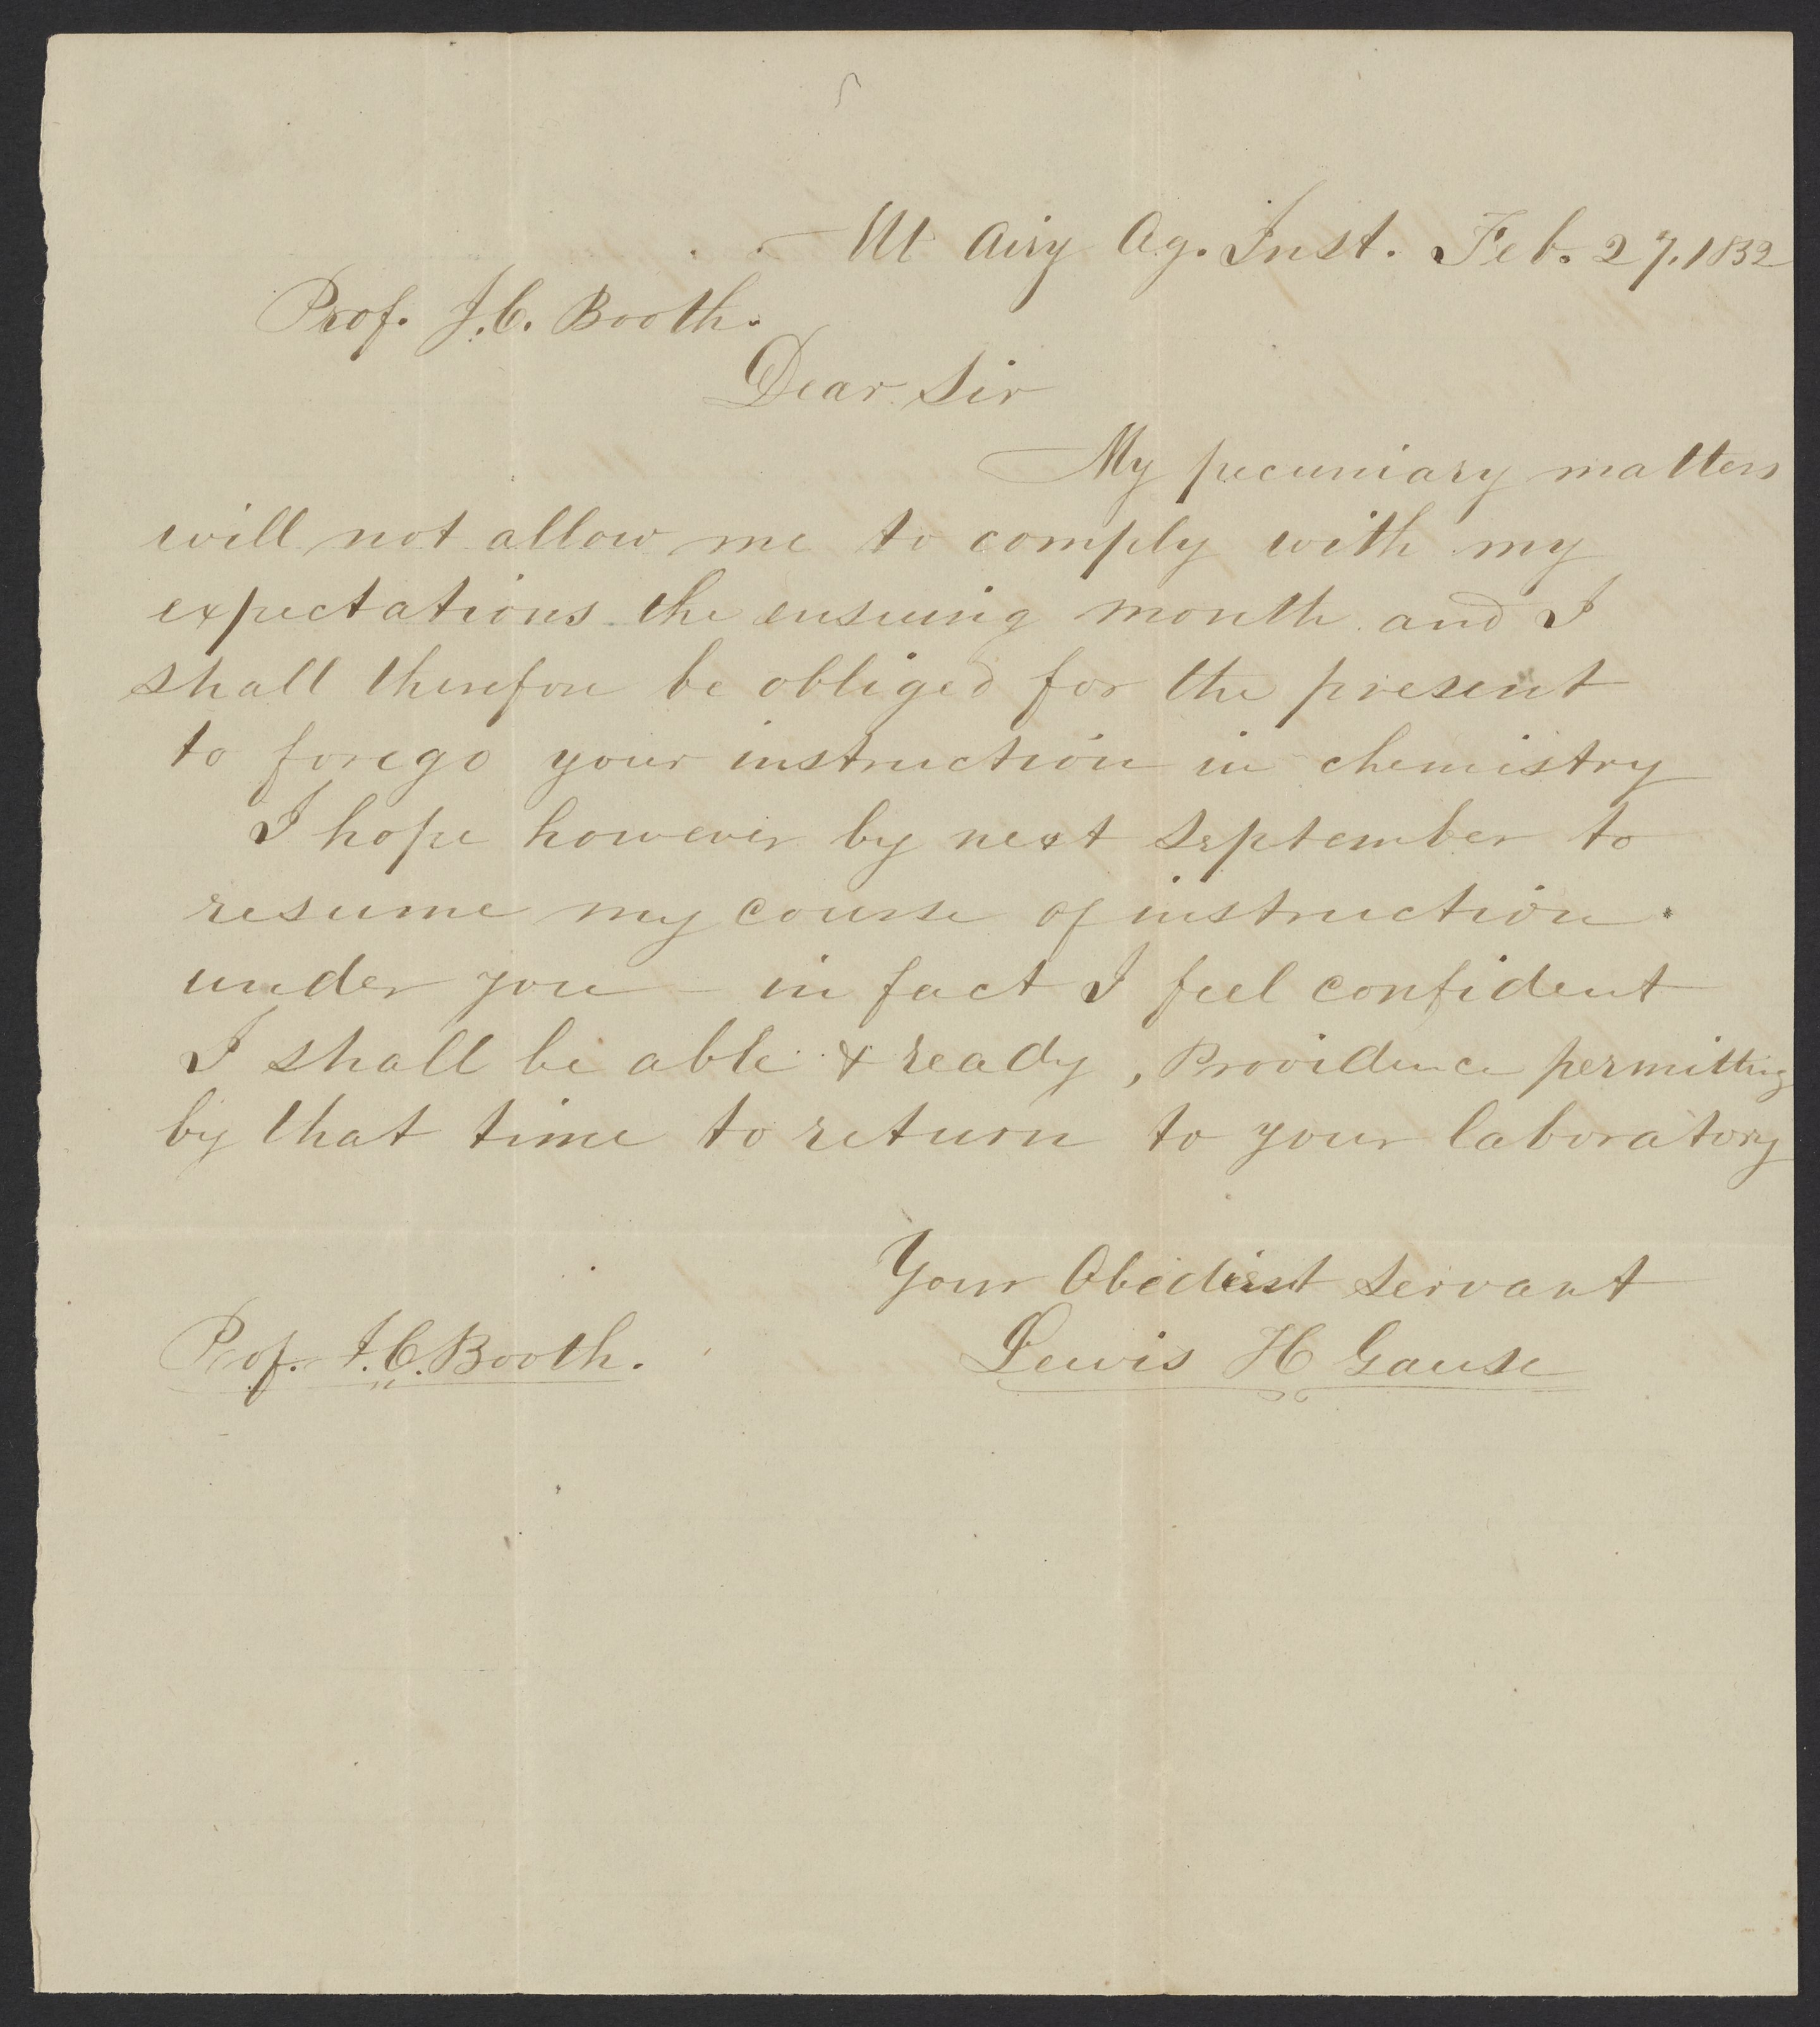 Mt Airy Ag. Inst. Feb. 27. 1832
Prof. J. C. Booth.
Dear Sir
My pecuniary matters
will not allow me to comply with my
expectations the ensuing month and I
shall therefore be obliged for the present
to forego your instruction in chemistry
I hope however by next September to
resume my course of instruction.
under you - in fact I feel confident
I shall be able & ready, Providence permitting
by that time to return to your laboratory
Your Obedient Servant
Prof. J. C. Booth. Lewis H Gause